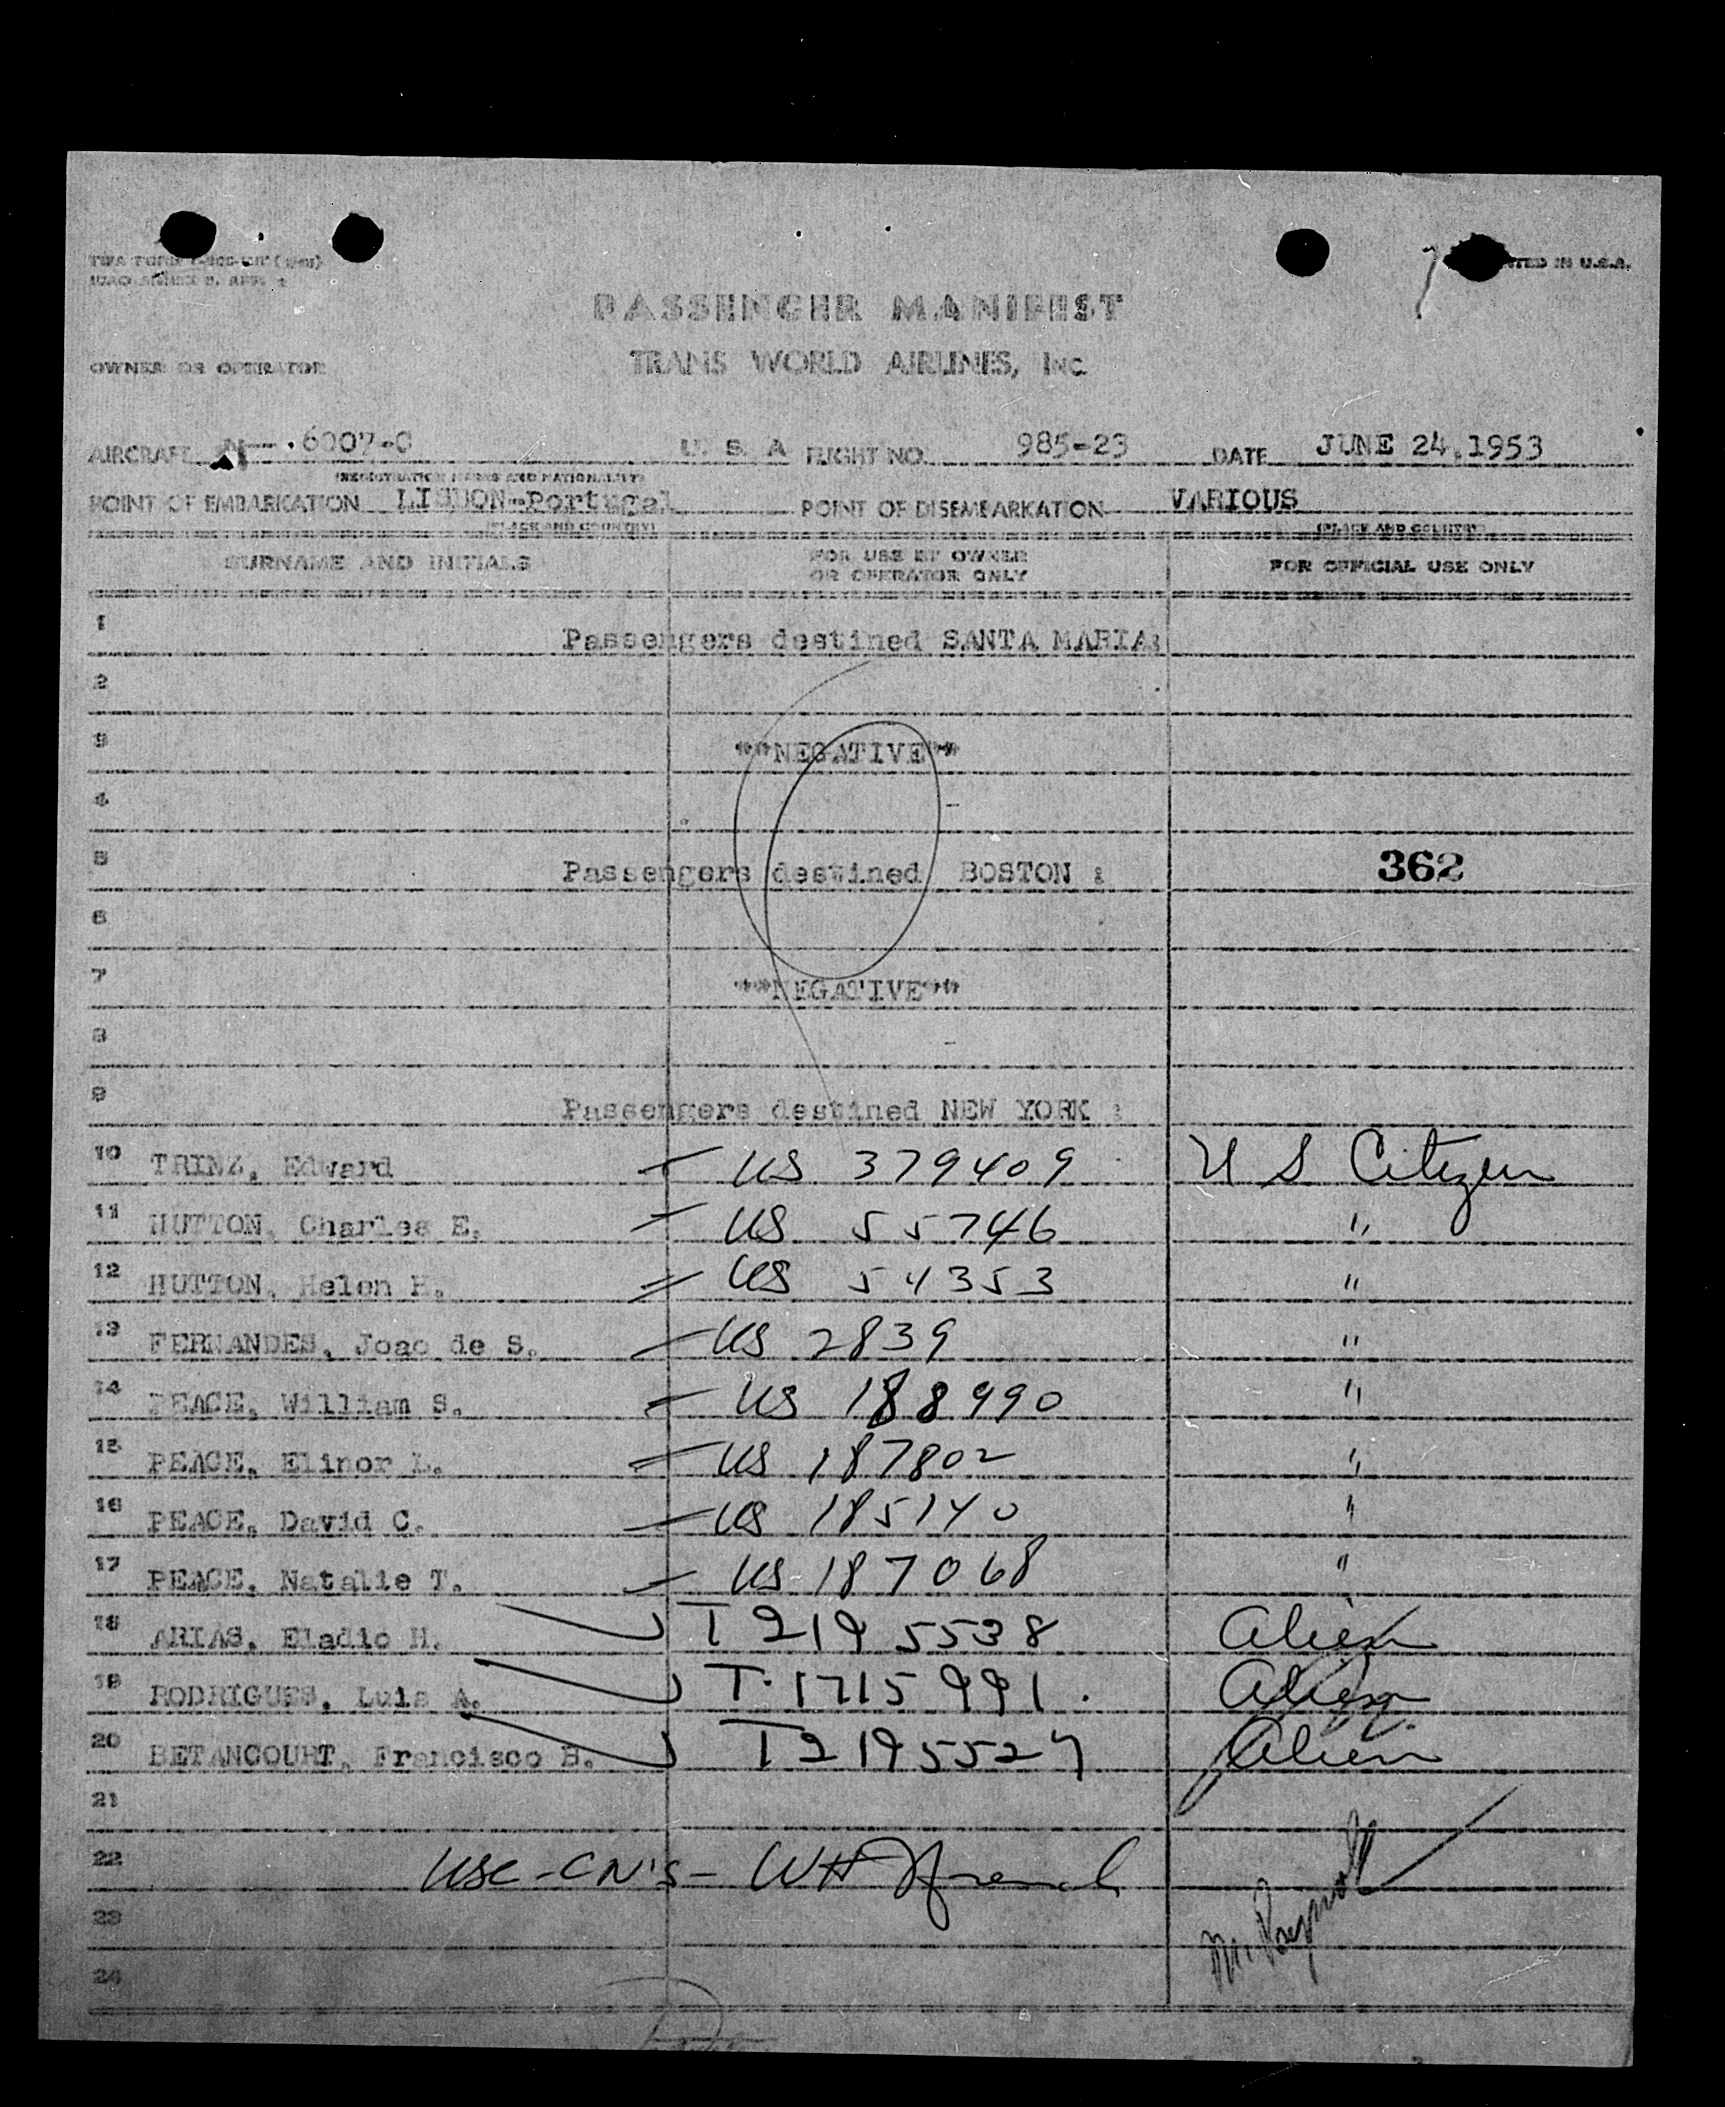 PRINTED IN U.S.A.
PASSENGER MANIFEST
OWNER OR OPERATOR TRANS WORLD AIRLINES, INC.
AIRCRAFT N-.6007-C U. S. A FLIGHT NO. 985-23 DATE JUNE 24,1953
(REGISTRATION MARKS AND NATIONALITY)
POINT OF EMBARKATION LISBON-Portugal POINT OF DISEMBARKATION VARIOUS
(PLACE AND COUNTRY) (PLACE AND COUNTRY)
SURNAME AND INITIALS FOR USE BY OWNER OR OPERATOR ONLY FOR OFFICIAL USE ONLY
1 Passengers destined SANTA MARIA:
2
3 **NEGATIVE**
4
5 Passengers destined BOSTON : 362
6
7 **NEGATIVE**
8
9 Passengers destined NEW YORK :
10 TRINZ, Edward US 379409 U S Citizen
11 HUTTON, Charles E. US 55746 "
12 HUTTON, Helen H. US 54353 "
13 FERNANDES, Joao de S. US 2839 "
14 PEACE, William S. US 188990 "
15 PEACE, Elinor L. US 187802 "
16 PEACE, David C. US 185140 "
17 PEACE, Natalie T. US 187068 "
18 ARIAS, Eladio H. T 2195538 Alien
19 RODRIGUES, Luis A. T.1715991. Alien
20 BETANCOURT, Francisco B. T2195527 Alien
21
22 USC-CN'S- WH French
23
24